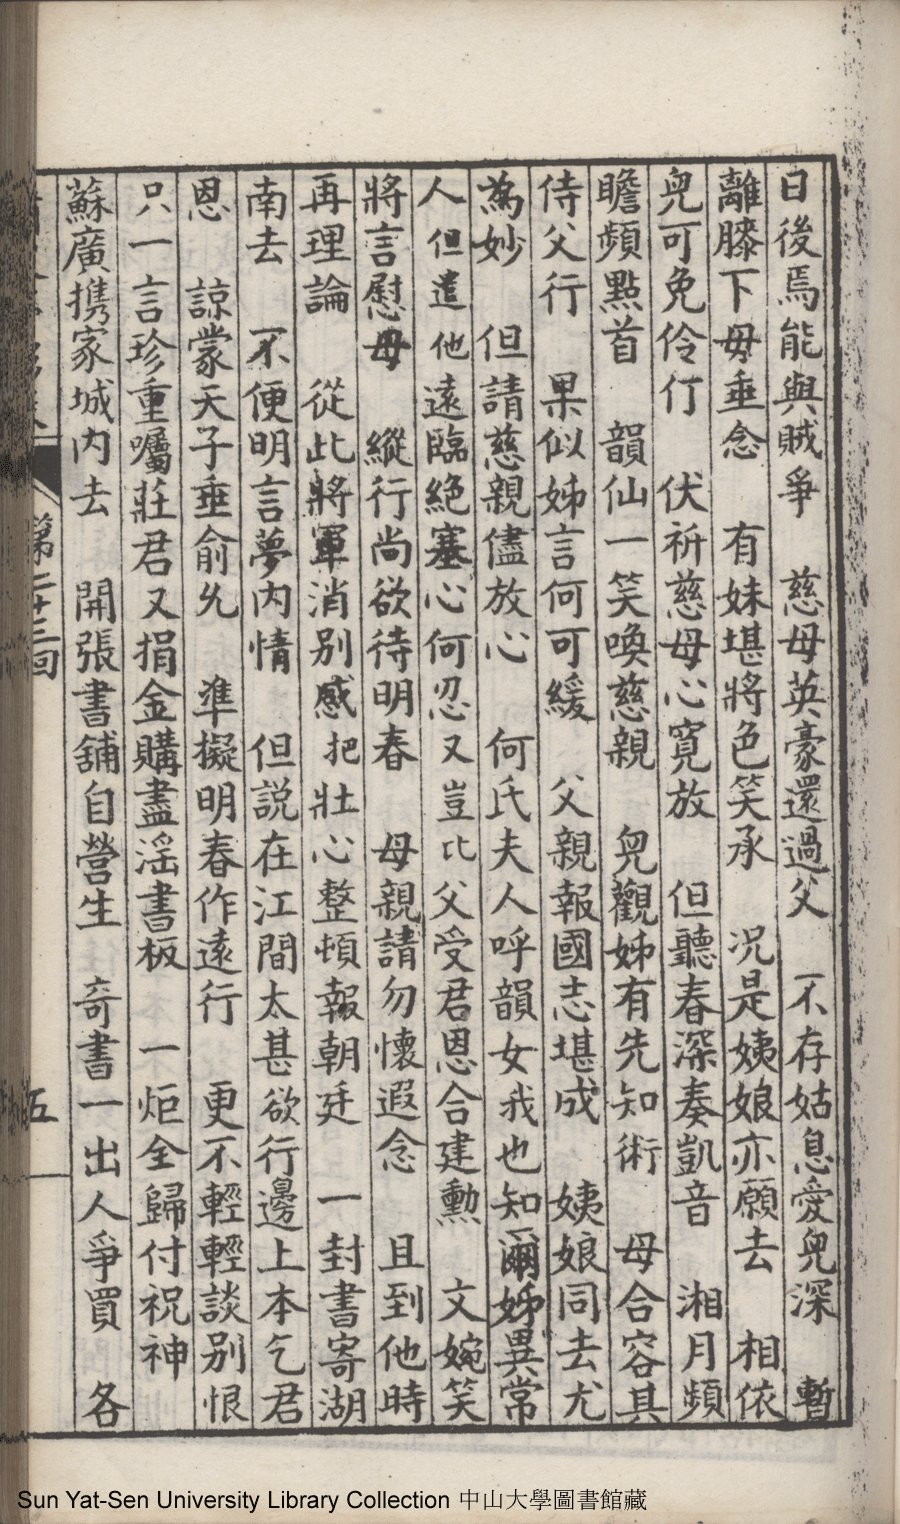 日後焉能與賊爭　慈母英豪還過父　不存姑息愛兒深　暫
離膝下毋垂念　有妹堪將色笑承　况是姨娘亦願去　相依
兒可免伶仃　伏祈慈母心寛放　但聽春深奏凱音　湘月頻
瞻頻點首　韻仙一笑喚慈親　兒觀姊有先知術　母合容其
侍父行　果似姊言何可緩　父親報國志堪成　姨娘同去尤
為妙　但請慈親儘放心　何氏夫人呼韻女我也知爾姊異常
人但遣他遠臨絕塞心何忍又豈比父受君恩合建勳　文婉笑
將言慰母　縱行尚欲待明春　母親請勿懷遐念　且到他時
再理論　從此將軍消別感把壯心整頓報朝廷　一封書寄湖
南去　不便明言夢内情　但説在江間太甚欲行邊上本乞君
恩　諒蒙天子垂俞允　準擬明春作遠行　更不輕輕談別恨
只一言珍重囑莊君又捐金購盡滛書板　一炬全歸付祝神
蘇廣携家城内去　開張書舖自營生　奇書一出人爭買　各
第二十三回
五
Sun Yat-Sen University Library Collection 中山大學圖書館藏